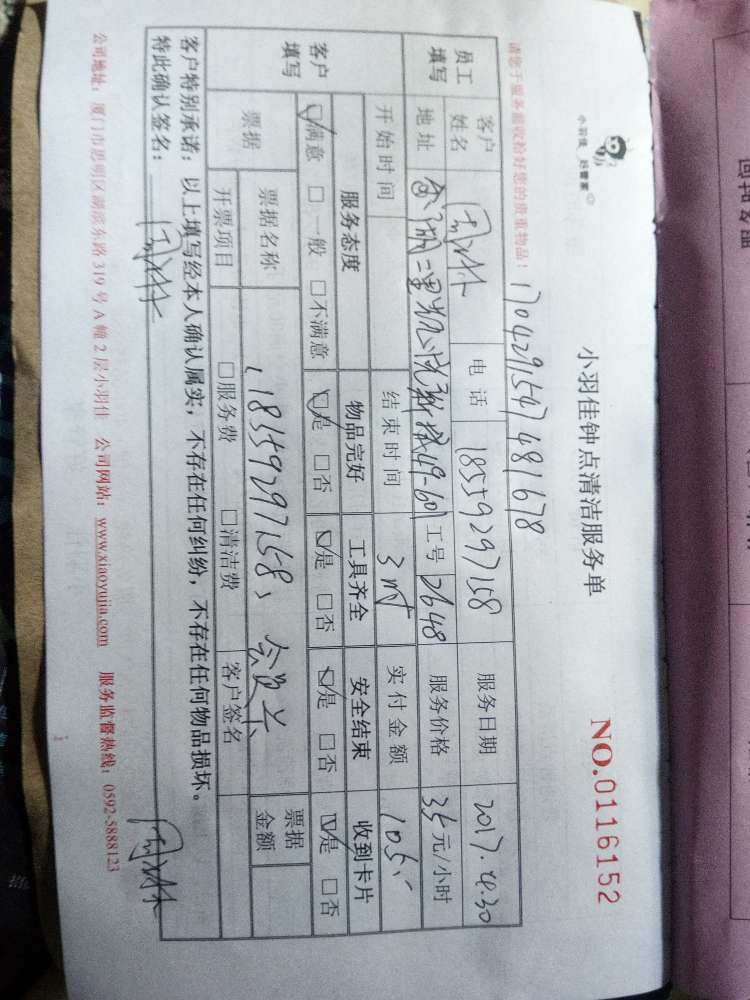 小羽佳 好管家
小羽佳钟点清洁服务单
NO.0116152
请您于服务前收拾好您的贵重物品!
170429154748 1678
员工填写
客户姓名
电话 18559297158
服务日期 2017.4.30
地址
49-601
工号 2648
服务价格 35元/小时
开始时间
结束时间 3时
实付金额 105
客户填写
服务态度 物品完好 工具齐全 安全结束 收到卡片
☑满意 □一般 □不满意 ☑是 □否 ☑是 □否 ☑是 □否 ☑是 □否
票据
票据名称 18559297158、会员卡
票据金额
开票项目 □服务费 □清洁费 客户签名
客户特别承诺:以上填写经本人确认属实,不存在任何纠纷,不存在任何物品损坏。
特此确认签名:
公司地址:厦门市思明区湖滨东路319号A幢2层小羽佳 公司网站:www.xiaoyujia.com 服务监督热线:0592-5888123